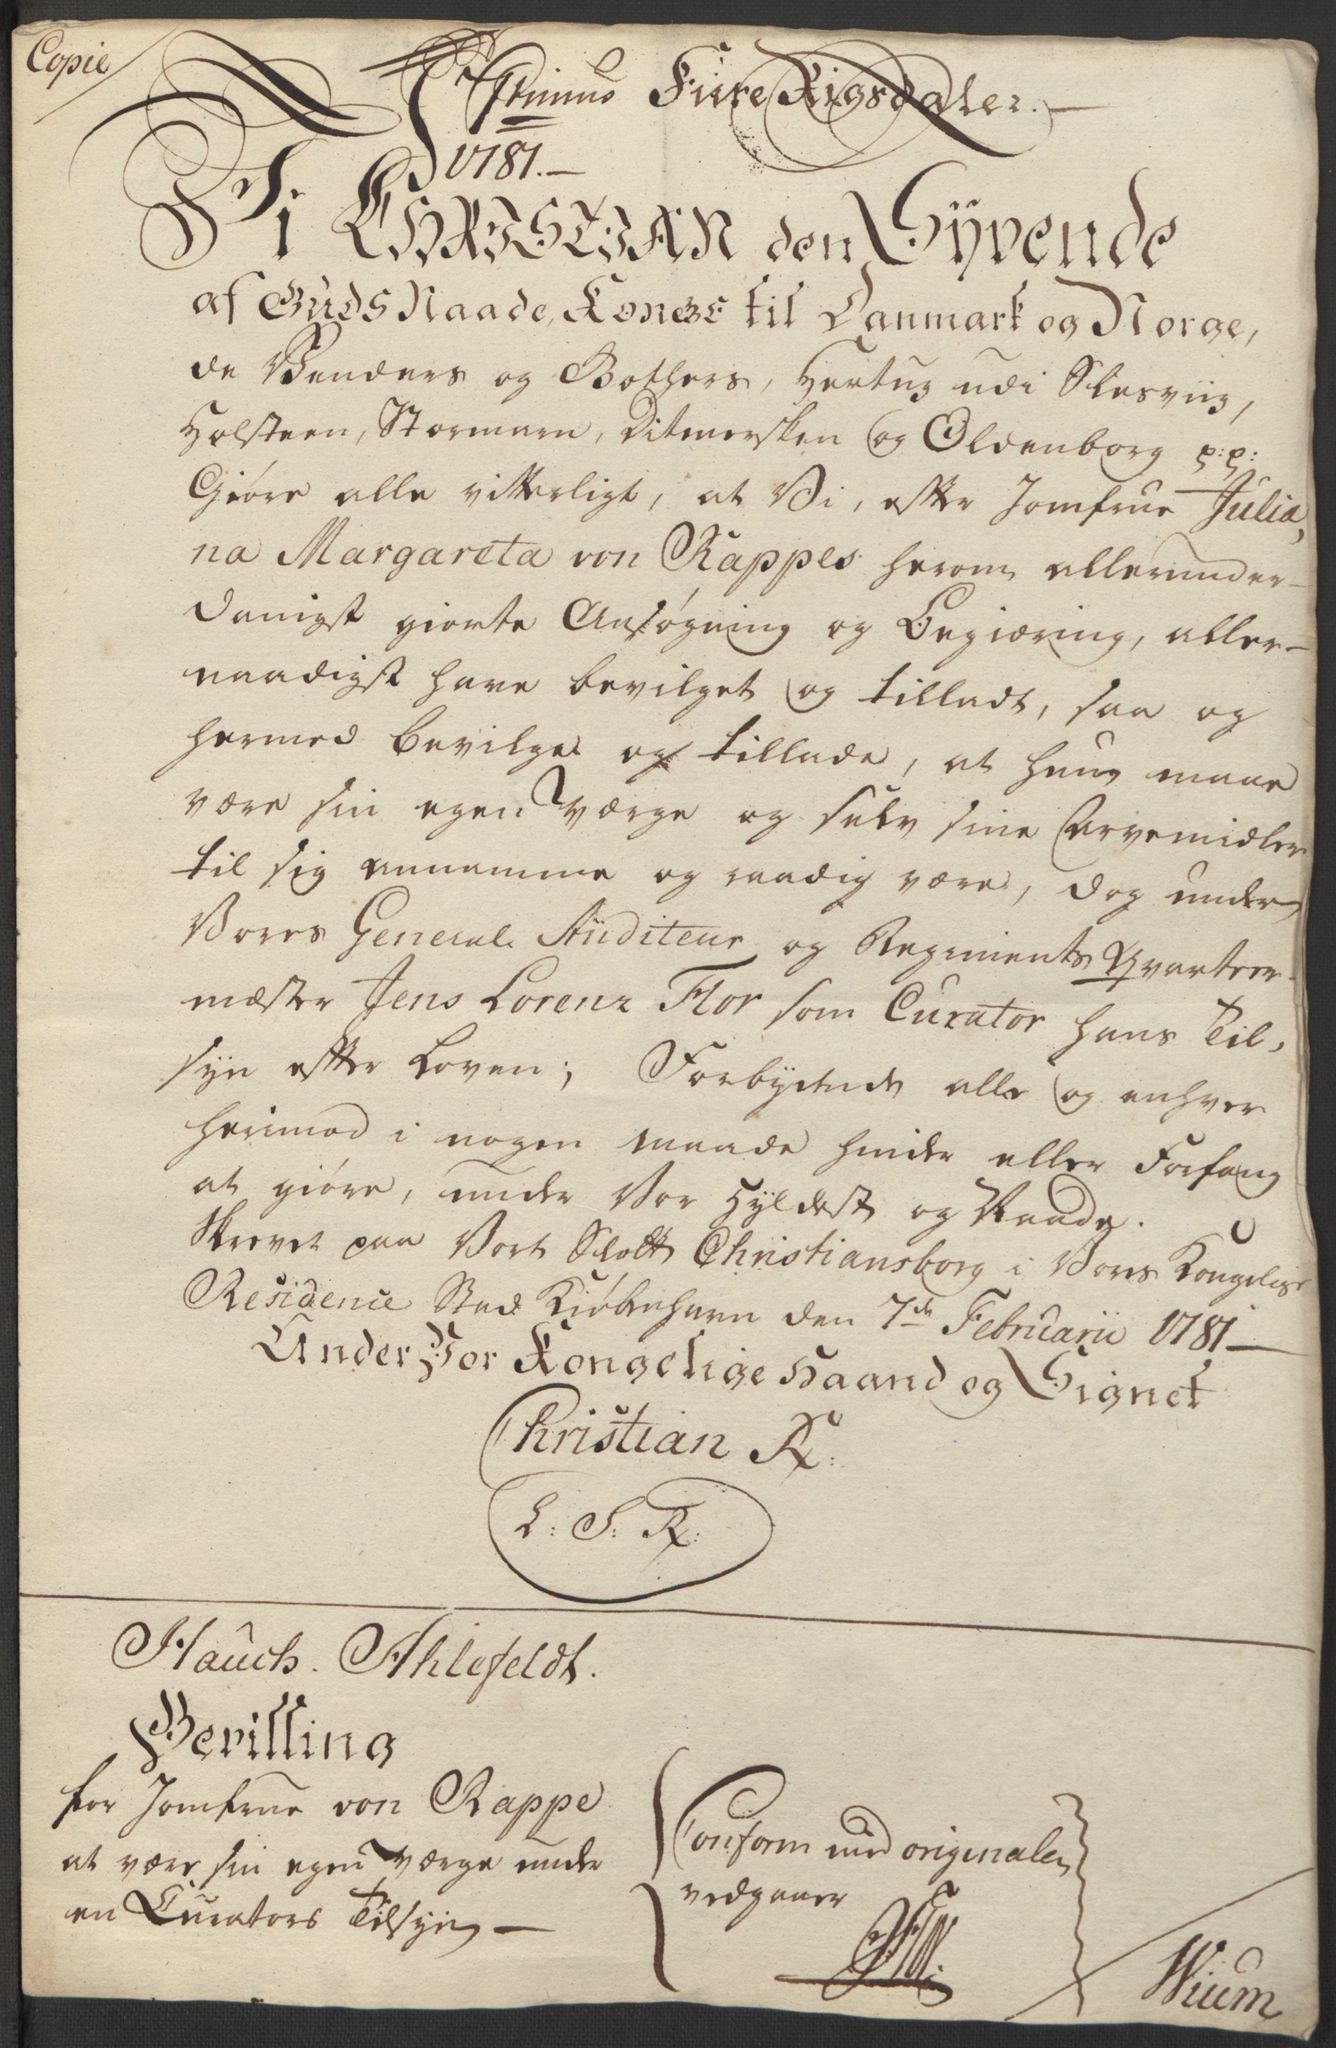 Copie
Primus Fiire Rigsdaler.
1781.
Vi CHRISTIAN den Syvende
af Guds Naade, Konge til Danmark og Norge,
de Venders og Gothers, Hertug udi Slesviig,
Holsteen, Stormarn, Ditmersken og Oldenborg p:p:
Giøre alle vitterligt, at Vi, efter Jomfrue Julia,
na Margareta von Rappes herom allerunder-
danigst giorte Ansøgning og Begiæring, aller-
naadigst have bevilget og tilladt, saa og
hermed bevilge og tillade, at hun maae
være sin egen Værge og selv sine Arvemidler
til sig annamme og raadig være, dog under
Vores General Auditeur og Regiments Qvarteer-
mæster Jens Lorenz Flor som Curator hans Til,
syn efter Loven; Forbydende alle og enhver
herimod i nogen maade hinder eller Forfang
at giøre, under Vor Hyldest og Naade.
Skrevet paa Vort Slott Christiansborg i Vores Kongelige
Residence Stad Kiøbenhavn den 7de Februarii 1781
Under Vor Kongelige Haand og Signet
Christian R:
L: S: R:
Hauch. Ahlefeldt.
Bevilling
for Jomfrue von Rappe
at være sin egen Værge under
en Curators Tilsyn
Conform med originalen
vedgaaer
Flor.
Wium